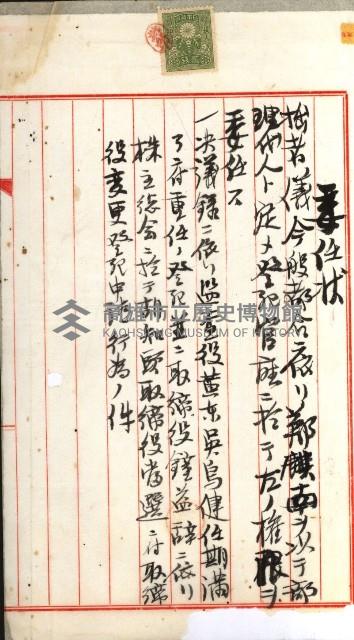 委任状
拙者儀今般都合ニ依リ鄭饌南ヲ以テ部
理代人ト定メ登記官庁ニ於テ左ノ権限ヲ
委任ス
一決議録ニ依リ監査役黄東吳鳥健任期満
了ニ付重任ノ登記並ニ取締役鐘益辞ニ依リ
株主総会ニ於テ林和頭取締役当選ニ付取締
役変更登記申請行為ノ件
高雄市立歷史博物館
KAOHSIUNG MUSEUM OF HISTORY